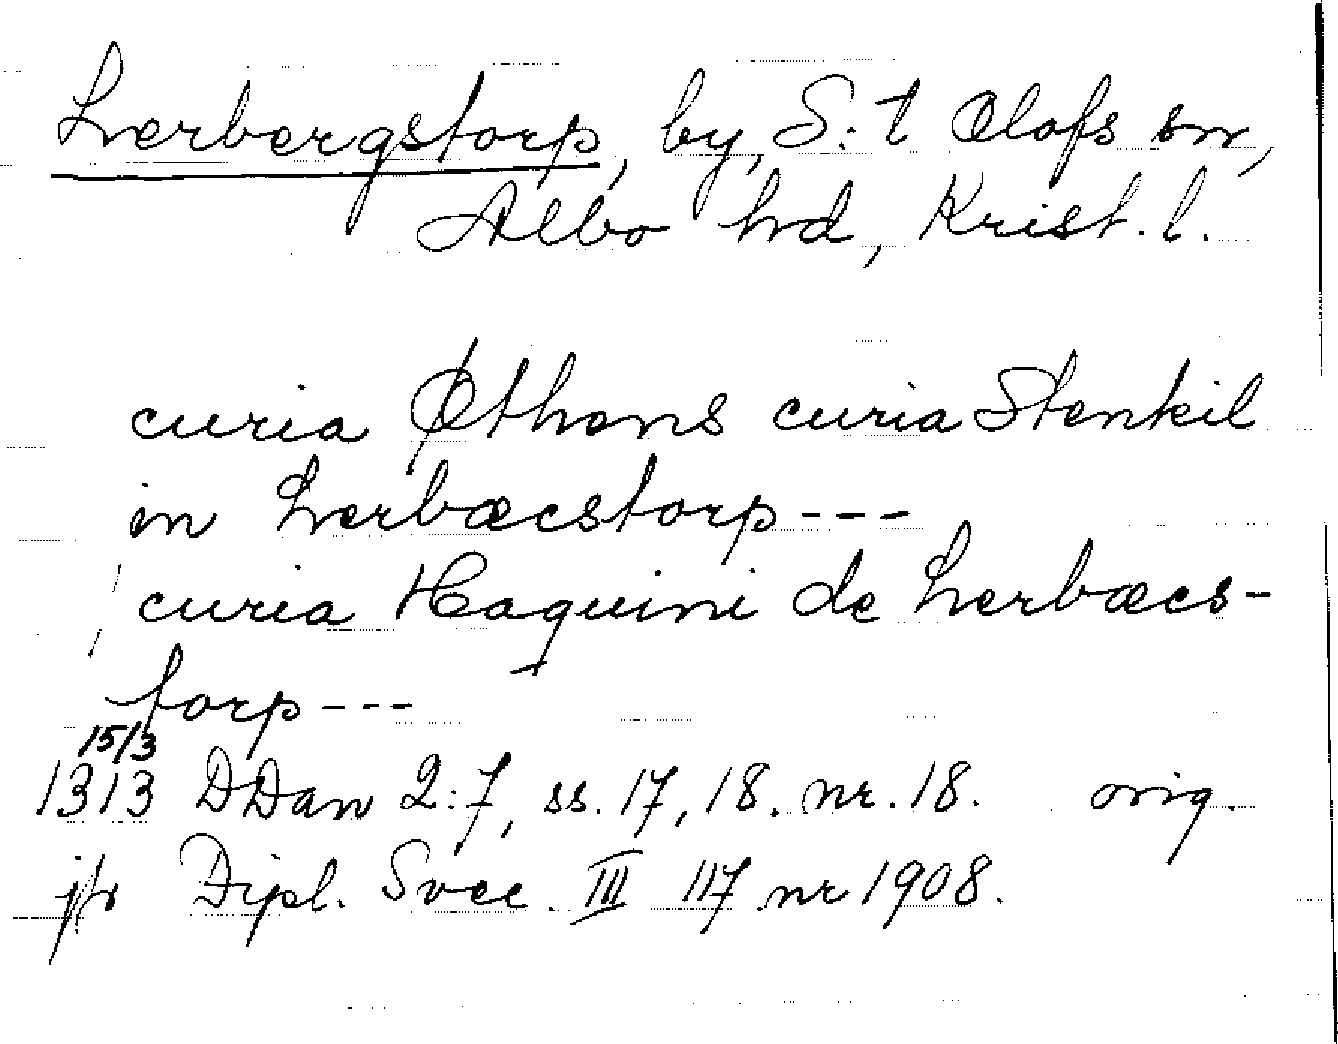 Lerbergstorp, by, S:t Olofs sn,
Albo hd, Krist. l.
curia Øthens curia Stenkil
in Lerbæcstorp ---
curia Haquini de Lerbæcs-
torp ---
15/3
1313 DDan 2:7, ss. 17, 18. nr. 18. orig.
jfr Dipl. Svec. III 117 nr 1908.